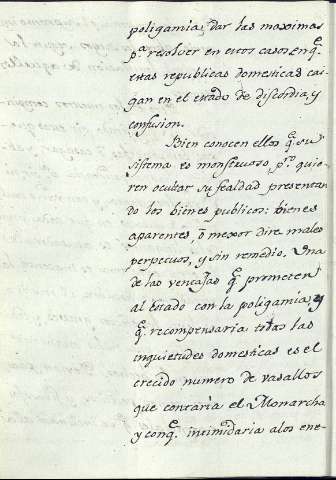 poligamia, dar las maximas
pª resolver en estos casos, enq.ᵉ
estas republicas domesticas cai-
gan en el estado de discordia, y
confusion.
Bien conocen ellos q.ᵉ su
sistema es monstruoso, p.ʳᵒ quie-
ren ocultar su fealdad presentan
do los bienes publicos: bienes
aparentes, ó mexor dire males
perpetuos, y sin remedio. Una
de las ventajas q.ᵉ prometen
al Estado con la poligamia, y
q.ᵉ recompensaria todas las
inquietudes domesticas es el
crecido numero de vasallos
que contaria el Monarcha
y conq.ᵉ intimidaria alos ene-